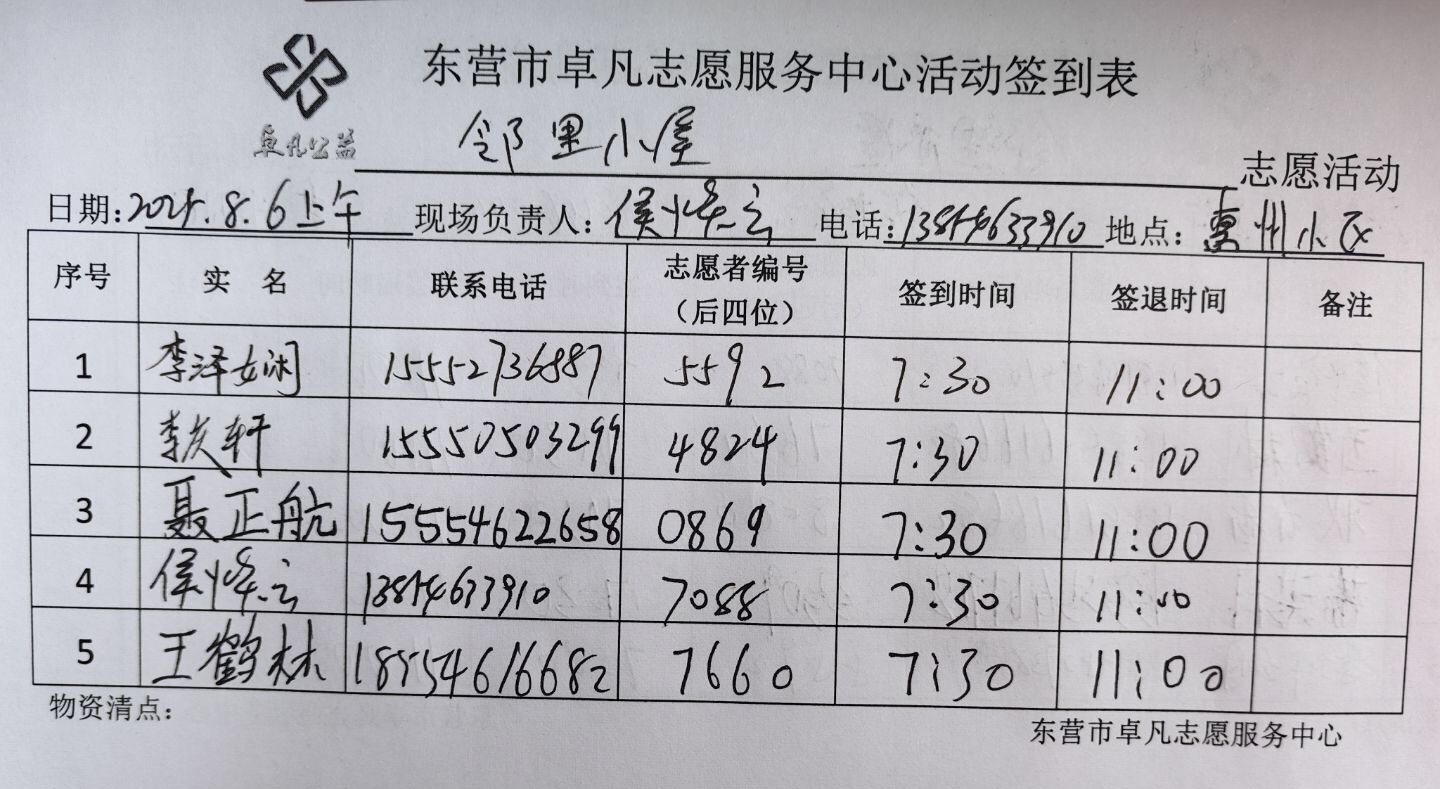 东营市卓凡志愿服务中心活动签到表
卓凡公益 邻里小屋 志愿活动
日期:2025.8.6上午 现场负责人:侯峰云 电话:13854633910 地点:惠州小区
序号 实 名 联系电话 志愿者编号(后四位) 签到时间 签退时间 备注
1 李泽娴 15552736887 5592 7:30 11:00
2 李文轩 15550503299 4824 7:30 11:00
3 聂正航 15554622658 0869 7:30 11:00
4 侯峰云 13854633910 7088 7:30 11:00
5 王鹤林 18554616682 7660 7:30 11:00
物资清点:
东营市卓凡志愿服务中心